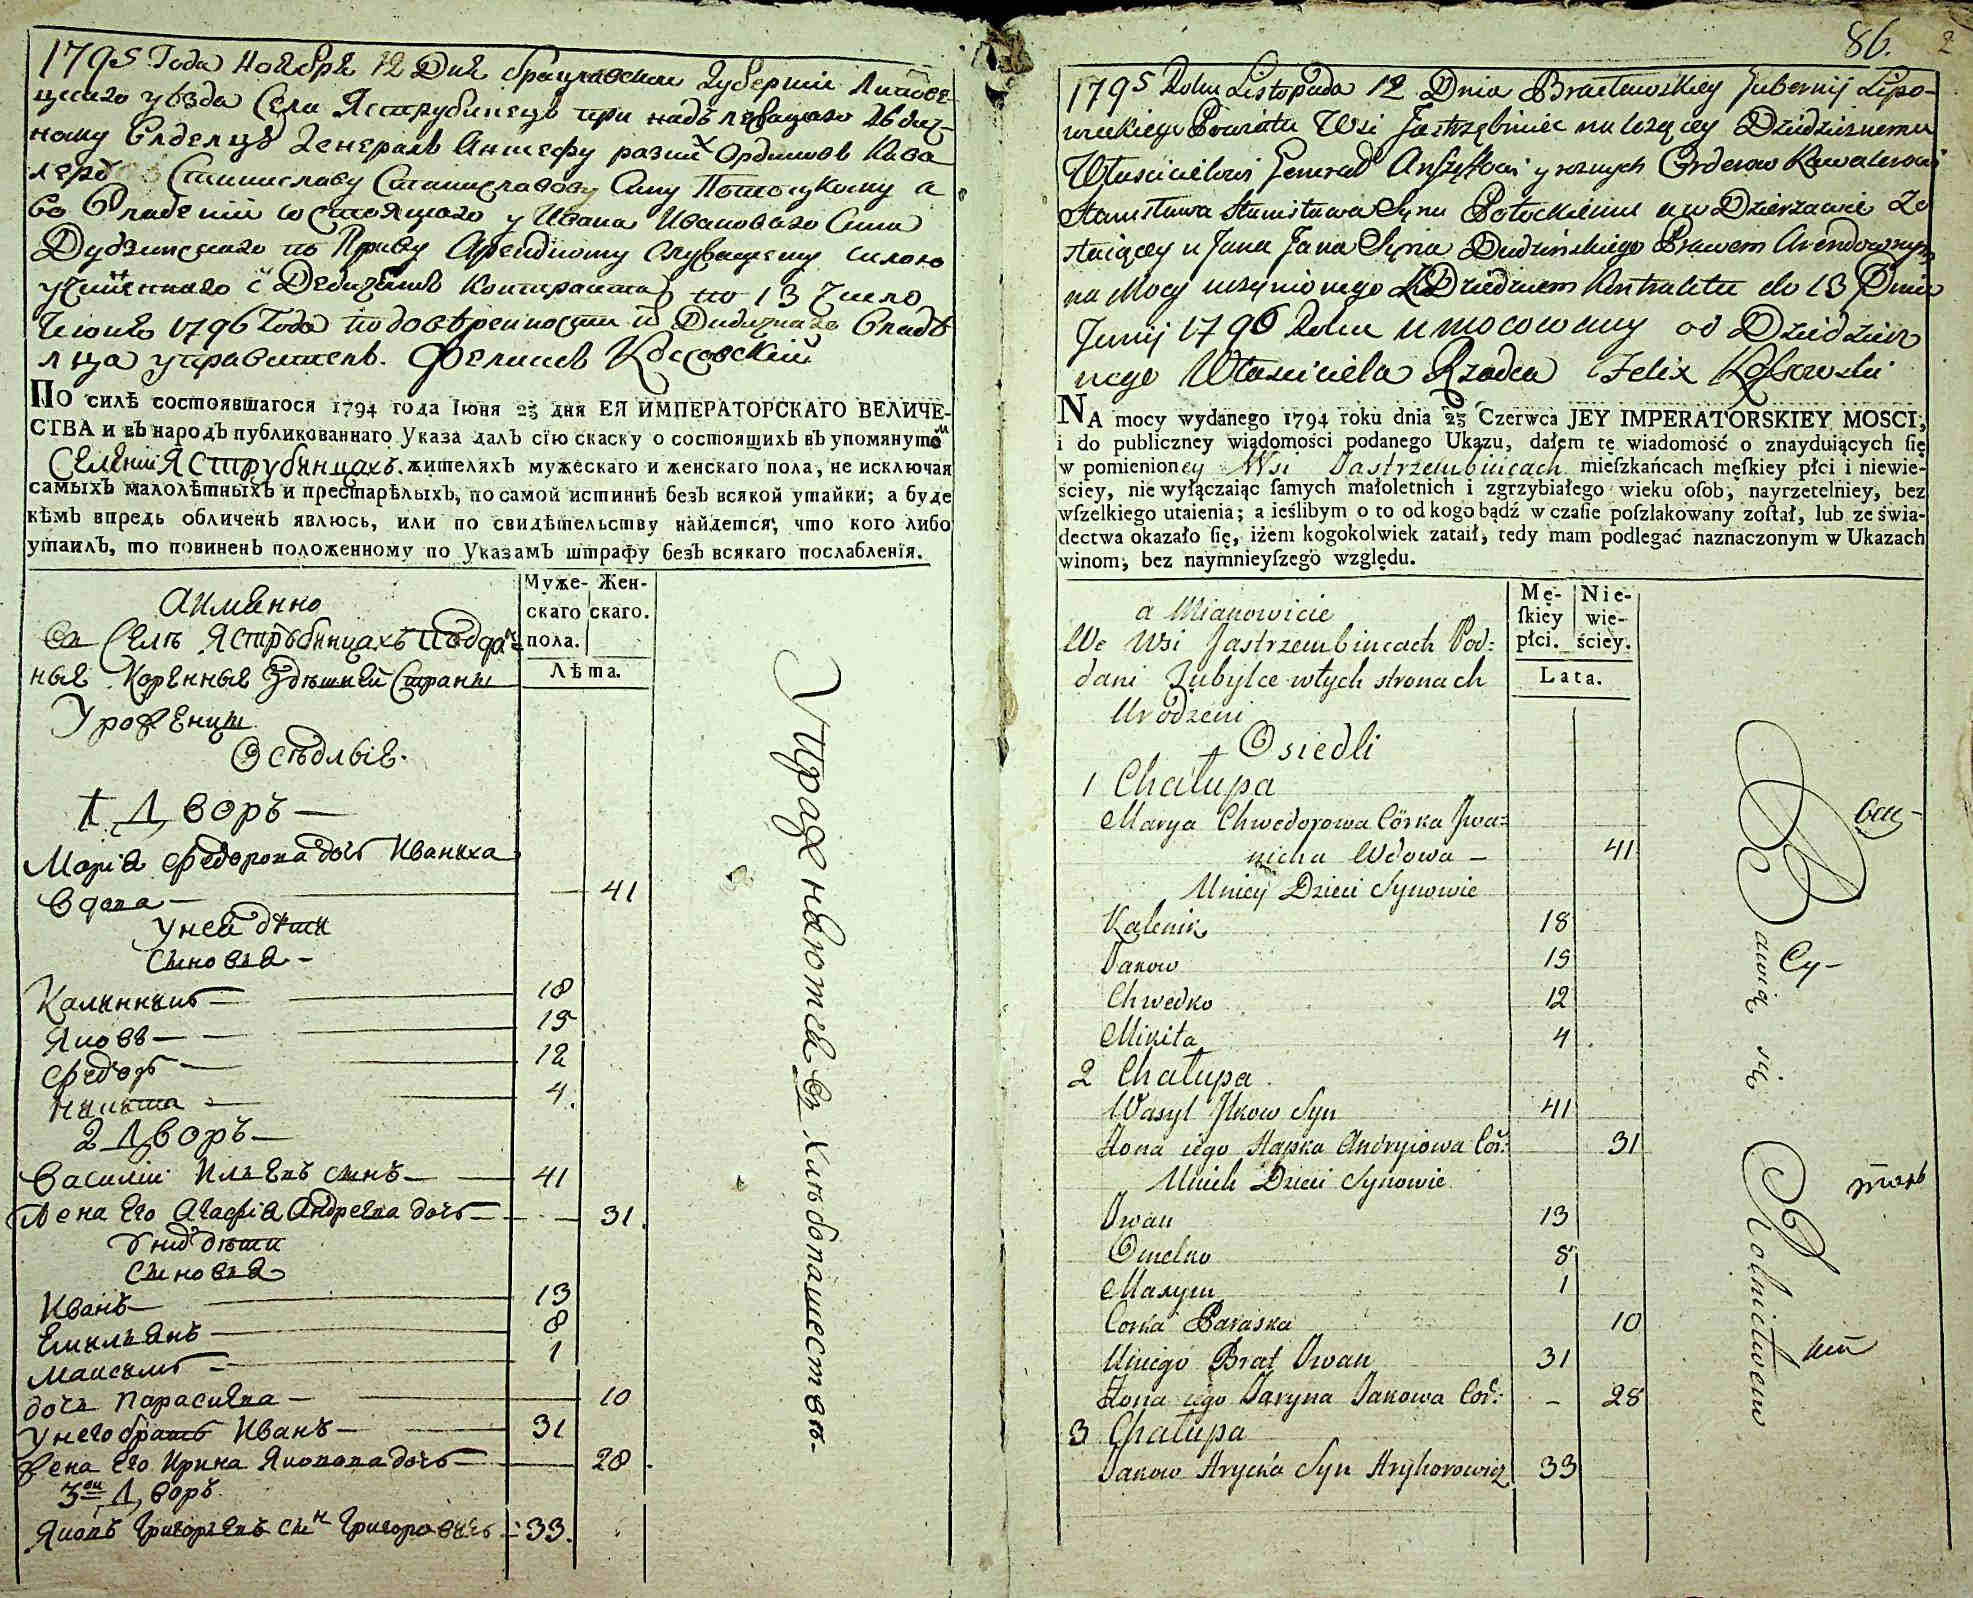 1795 Года Ноября 12 Дня брацлавской Губернiи Липове-
цкаго уѣзда Села Яструбинецъ при надлежащаго Дѣдич-
ному Владелцу Генералъ Аншефу разныхъ Ординовъ Кава
леру Станиславу Станиславову Сыну Потоцкому а
во Владенiи состоящаго у Ивана Ивановаго Сына
Дудзинскаго по Праву Арендному силою
учиненнаго с Дедичемъ Контракта по 13 Число
Июня 1796 Года по довѣренности Дидичнаго Владѣ
лца управитель. Феликсъ Коссовскiй
По силѣ состоявшагося 1794 года Iюня 23 дня ЕЯ ИМПЕРАТОРСКАГО ВЕЛИЧЕ-
СТВА и въ народъ публикованнаго Указа далъ сiю скаску о состоящихъ въ упомянутомъ
Селенiи Яструбинцахъ. жителяхъ мужескаго и женскаго пола, не исключая
самыхъ малолѣтныхъ и престарѣлыхъ, по самой истиннѣ безъ всякой утайки; а буде
кѣмъ впредь обличенъ явлюсь, или по свидѣтельству найдется, что кого либо
утаилъ, то повиненъ положенному по Указамъ штрафу безъ всякаго послабленiя.
Муже- Жен-
скаго скаго.
пола.
Лѣта.
аимянно
Въ Селѣ Яструбинцахъ Подда
ные Коренные Здѣшней Страны
Уроженцы
Осѣдлыiе.
1 Дворъ —
Марiя Федорова дочь Иваниха
вдова — 41
у ней дѣти
сыновья —
Калинникъ — 18
Яковъ — 15
Федоръ — 12
Никита — 4.
2 Дворъ —
Василiй Ильевъ сынъ — 41
Жена Его Агафiя Андреева дочь — 31.
У них дѣти
сыновья
Иванъ — 13
Емильянъ — 8
Максимъ — 1
дочь Парасковья — 10
у него братъ Иванъ — 31
Жена Его Ирина Яковова дочь — 28
3ой Дворъ
Яковъ Григорьевъ сынъ Григоровичъ — 33.
Упражняются въ Хлѣбопашествѣ.
86. 2
1795 Roku Listopada 12 Dnia Bracławskiey Gubernij Lipo-
wieckiego Powiatu Wsi Jastrzębiniec należącey Dziedzicznemu
Włascicielowi Generał Anszeffowi y roznych Orderow Kawalerowi
Stanisława Stanisława Synu Potockiemu a w Dzierzawie Zo
staiącey u Jana Jana Syna Dudzińskiego Prawem Arendownym
na Mocy uczynionego z Dziedzicem Kontraktu do 13 Dnia
Junij 1796 Roku umocowany od Dziedzicz
nego Własciciela Rządca Felix Kossowski
NA mocy wydanego 1794 roku dnia 23 Czerwca JEY IMPERATORSKIEY MOSCI,
i do publiczney wiądomości podanego Ukązu, dałem tę wiadomość o znayduiących się
w pomienioney Wsi Jastrzembincach mieſzkańcach męſkiey płci i niewie-
ściey, nie wyłączaiąc ſamych małoletnich i zgrzybiałego wieku oſob, nayrzetelniey, bez
wſzelkiego utaienia; a ieślibym o to od kogo bądź w czaſie poſzlakowany zoſtał, lub ze świa-
dectwa okazało ſię, iżem kogokolwiek zataił, tedy mam podlegać naznaczonym w Ukazach
winom, bez naymnieyſzego względu.
Mę- Nie-
ſkiey wie-
płci. ściey.
Lata.
a Mianowicie
We Wsi Jastrzembincach Pod:
dani Zubylce wtych stronach
Urodzeni
Osiedli
1 Chałupa
Marya Chwedorowa Córka Jwa:
nicha Wdowa — 41
Uniey Dzieci Synowie
Kalenik 18
Jakow 15
Chwedko 12
Mikita 4
2 Chałupa
Wasyl Jlkow Syn 41
Żona iego Hapka Andryiowa Cór: 31
Unich Dzieci Synowie
Jwan 13
Omelko 8
Maxym 1
Corka Paraska 10
Uniego Brat Jwan 31
Żona iego Jaryna Jakowa Cór: — 28
3 Chałupa
Jakow Hrycka Syn Hryhorowicz 33
Bawią się Rolnictwem